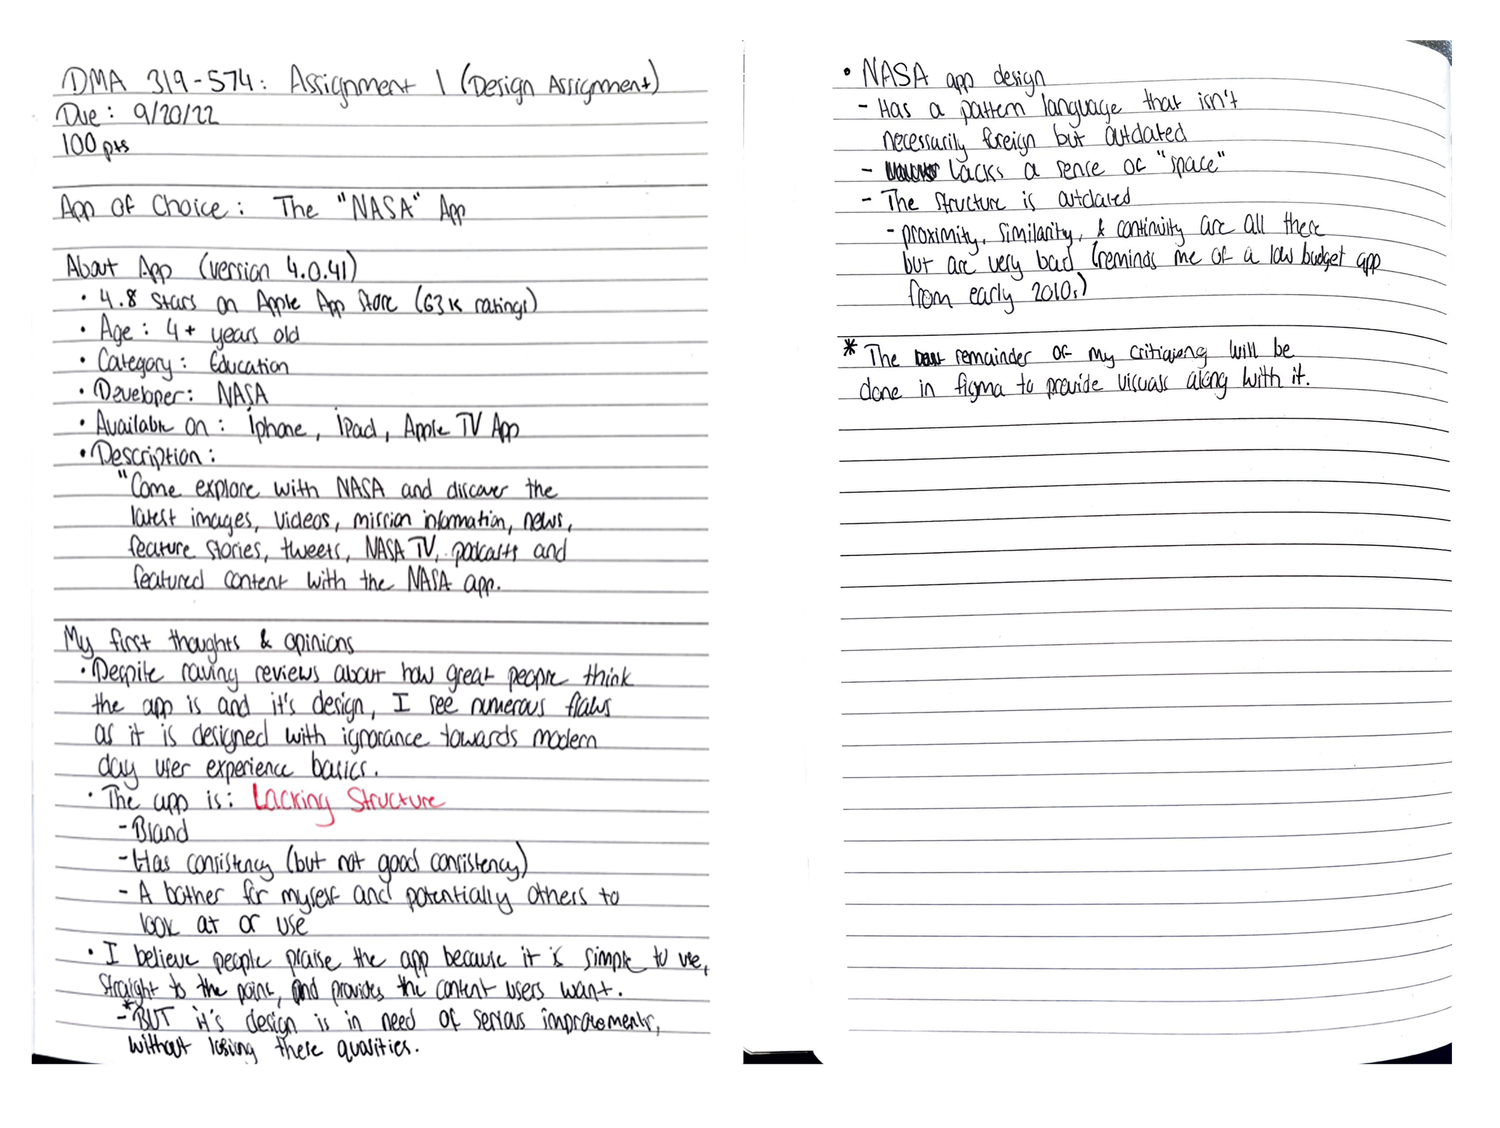 DMA 319-574: Assignment 1 (Design Assignment)
Due: 9/20/22
100 pts
App of Choice: The "NASA" App
About App (version 4.0.41)
• 4.8 stars on Apple App Store (63K ratings)
• Age: 4+ years old
• Category: Education
• Developer: NASA
• Available on: iphone, iPad, Apple TV App
• Description:
"Come explore with NASA and discover the
latest images, videos, mission information, news,
feature stories, tweets, NASA TV, podcasts and
featured content with the NASA app.
My first thoughts & opinions
• Despite raving reviews about how great people think
the app is and it's design, I see numerous flaws
as it is designed with ignorance towards modern
day user experience basics.
• The app is: Lacking Structure
- Bland
- Has consistency (but not good consistency)
- A bother for myself and potentially others to
look at or use
• I believe people praise the app because it is simple to use,
straight to the point, and provides the content users want.
*- BUT it's design is in need of serious improvements,
without losing these qualities.
• NASA app design
- Has a pattern language that isn't
necessarily foreign but outdated
- Lacks a sense of "space"
- The structure is outdated
- proximity, similarity, & continuity are all there
but are very bad (reminds me of a low budget app
from early 2010s)
* The remainder of my critiquing will be
done in figma to provide visuals along with it.